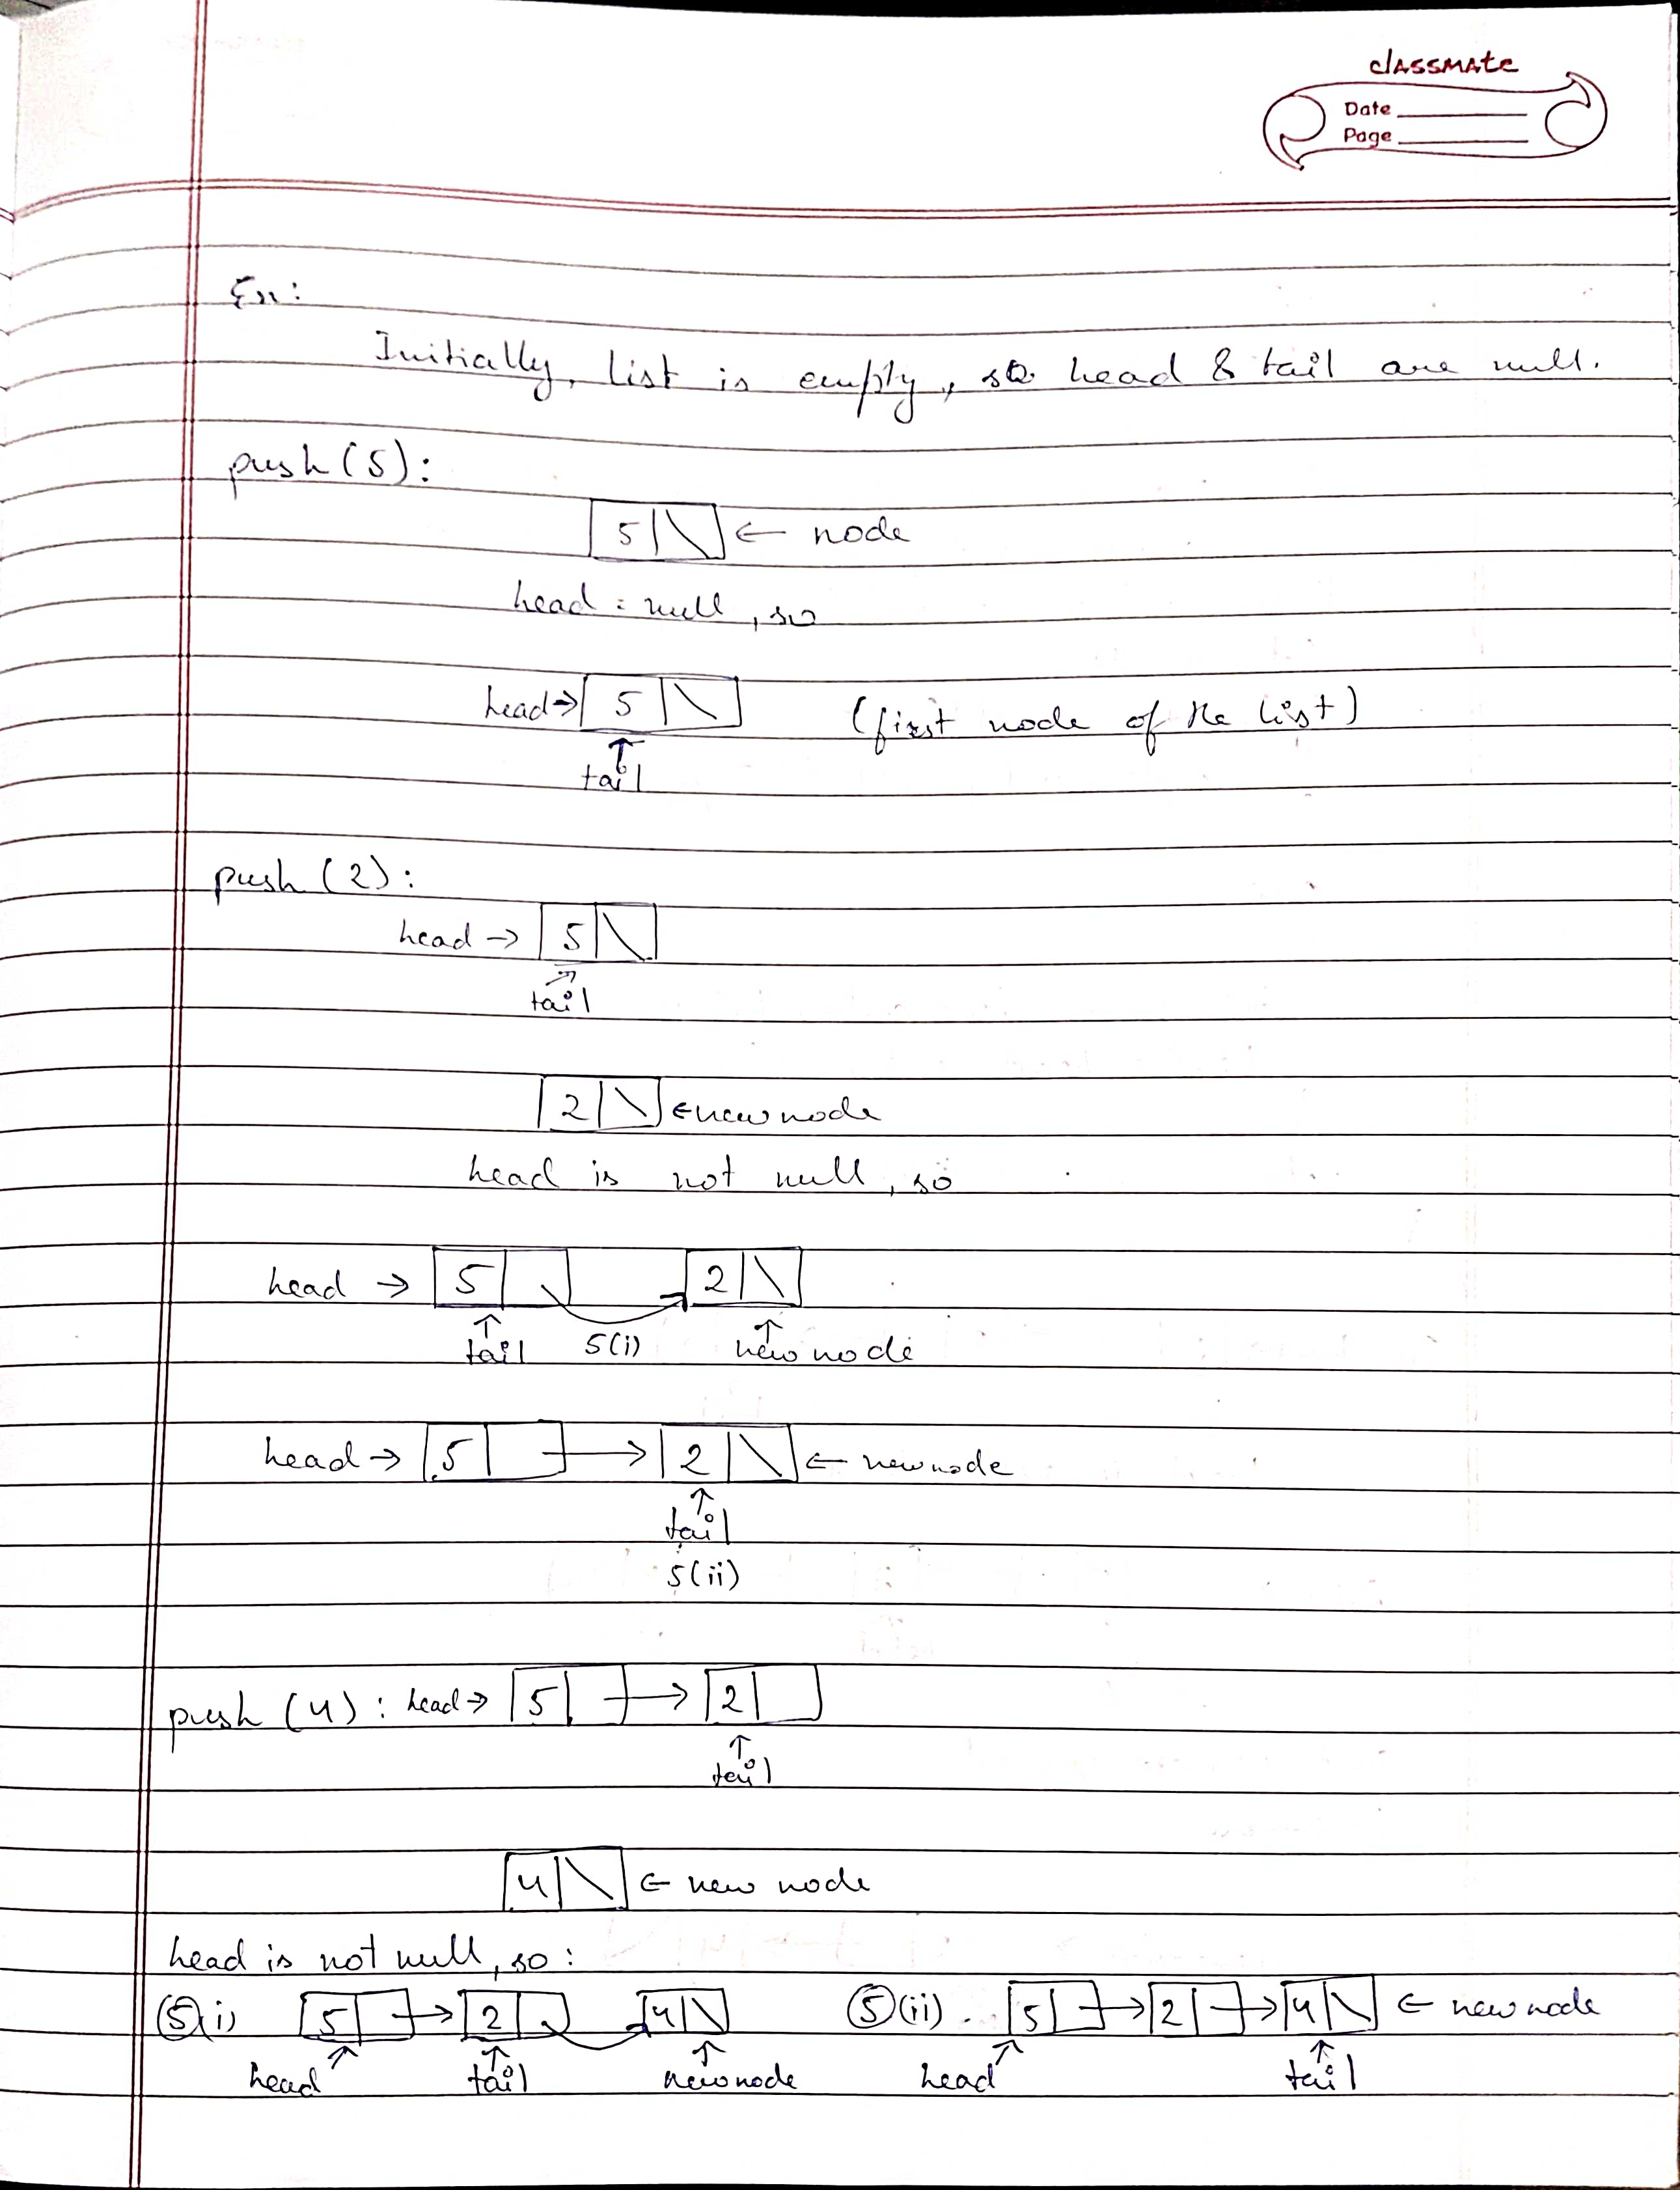 classmate
Date
Page
Ex:
Initially, list is empty, so head & tail are null.
push(5):
5 ← node
head = null, so
head→ 5 (first node of the list)
↑
tail
push(2):
head → 5
↗
tail
2 ← new node
head is not null, so
head → 5 2
↑ ↑
tail 5(i) new node
head → 5 → 2 ← new node
↑
tail
5(ii)
push(4): head→ 5 → 2
↑
tail
4 ← new node
head is not null, so:
⑤(i) 5 → 2 4 ⑤(ii). 5 → 2 → 4 ← new node
↗ ↑ ↑ ↗ ↑
head tail new node head tail